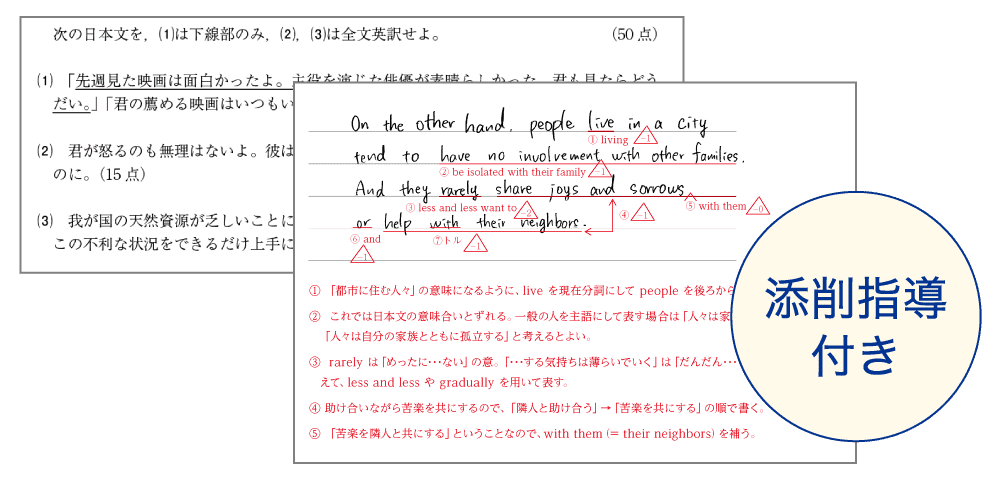 次の日本文を，(1)は下線部のみ，(2)，(3)は全文英訳せよ。 (50点)
(1) 「先週見た映画は面白かったよ。主役を演じた俳優が素晴らしかった。君も見たらどう
だい。」「君の薦める映画はいつもい
(2) 君が怒るのも無理はないよ。彼は
のに。(15点)
(3) 我が国の天然資源が乏しいことに
この不利な状況をできるだけ上手に
On the other hand, people live in a city
① living -1
tend to have no involvement with other families.
② be isolated with their family -1
And they rarely share joys and sorrows
③ less and less want to -2 ④ -1 ⑤ with them -0
or help with their neighbors.
⑥ and -1 ⑦トル -1
① 「都市に住む人々」の意味になるように、live を現在分詞にして people を後ろから
② これでは日本文の意味合いとずれる。一般の人を主語にして表す場合は「人々は家
「人々は自分の家族とともに孤立する」と考えるとよい。
③ rarely は「めったに･･･ない」の意。「･･･する気持ちは薄らいでいく」は「だんだん･･･
えて、less and less や gradually を用いて表す。
④ 助け合いながら苦楽を共にするので、「隣人と助け合う」→「苦楽を共にする」の順で書く。
⑤ 「苦楽を隣人と共にする」ということなので、with them (= their neighbors) を補う。
添削指導
付き